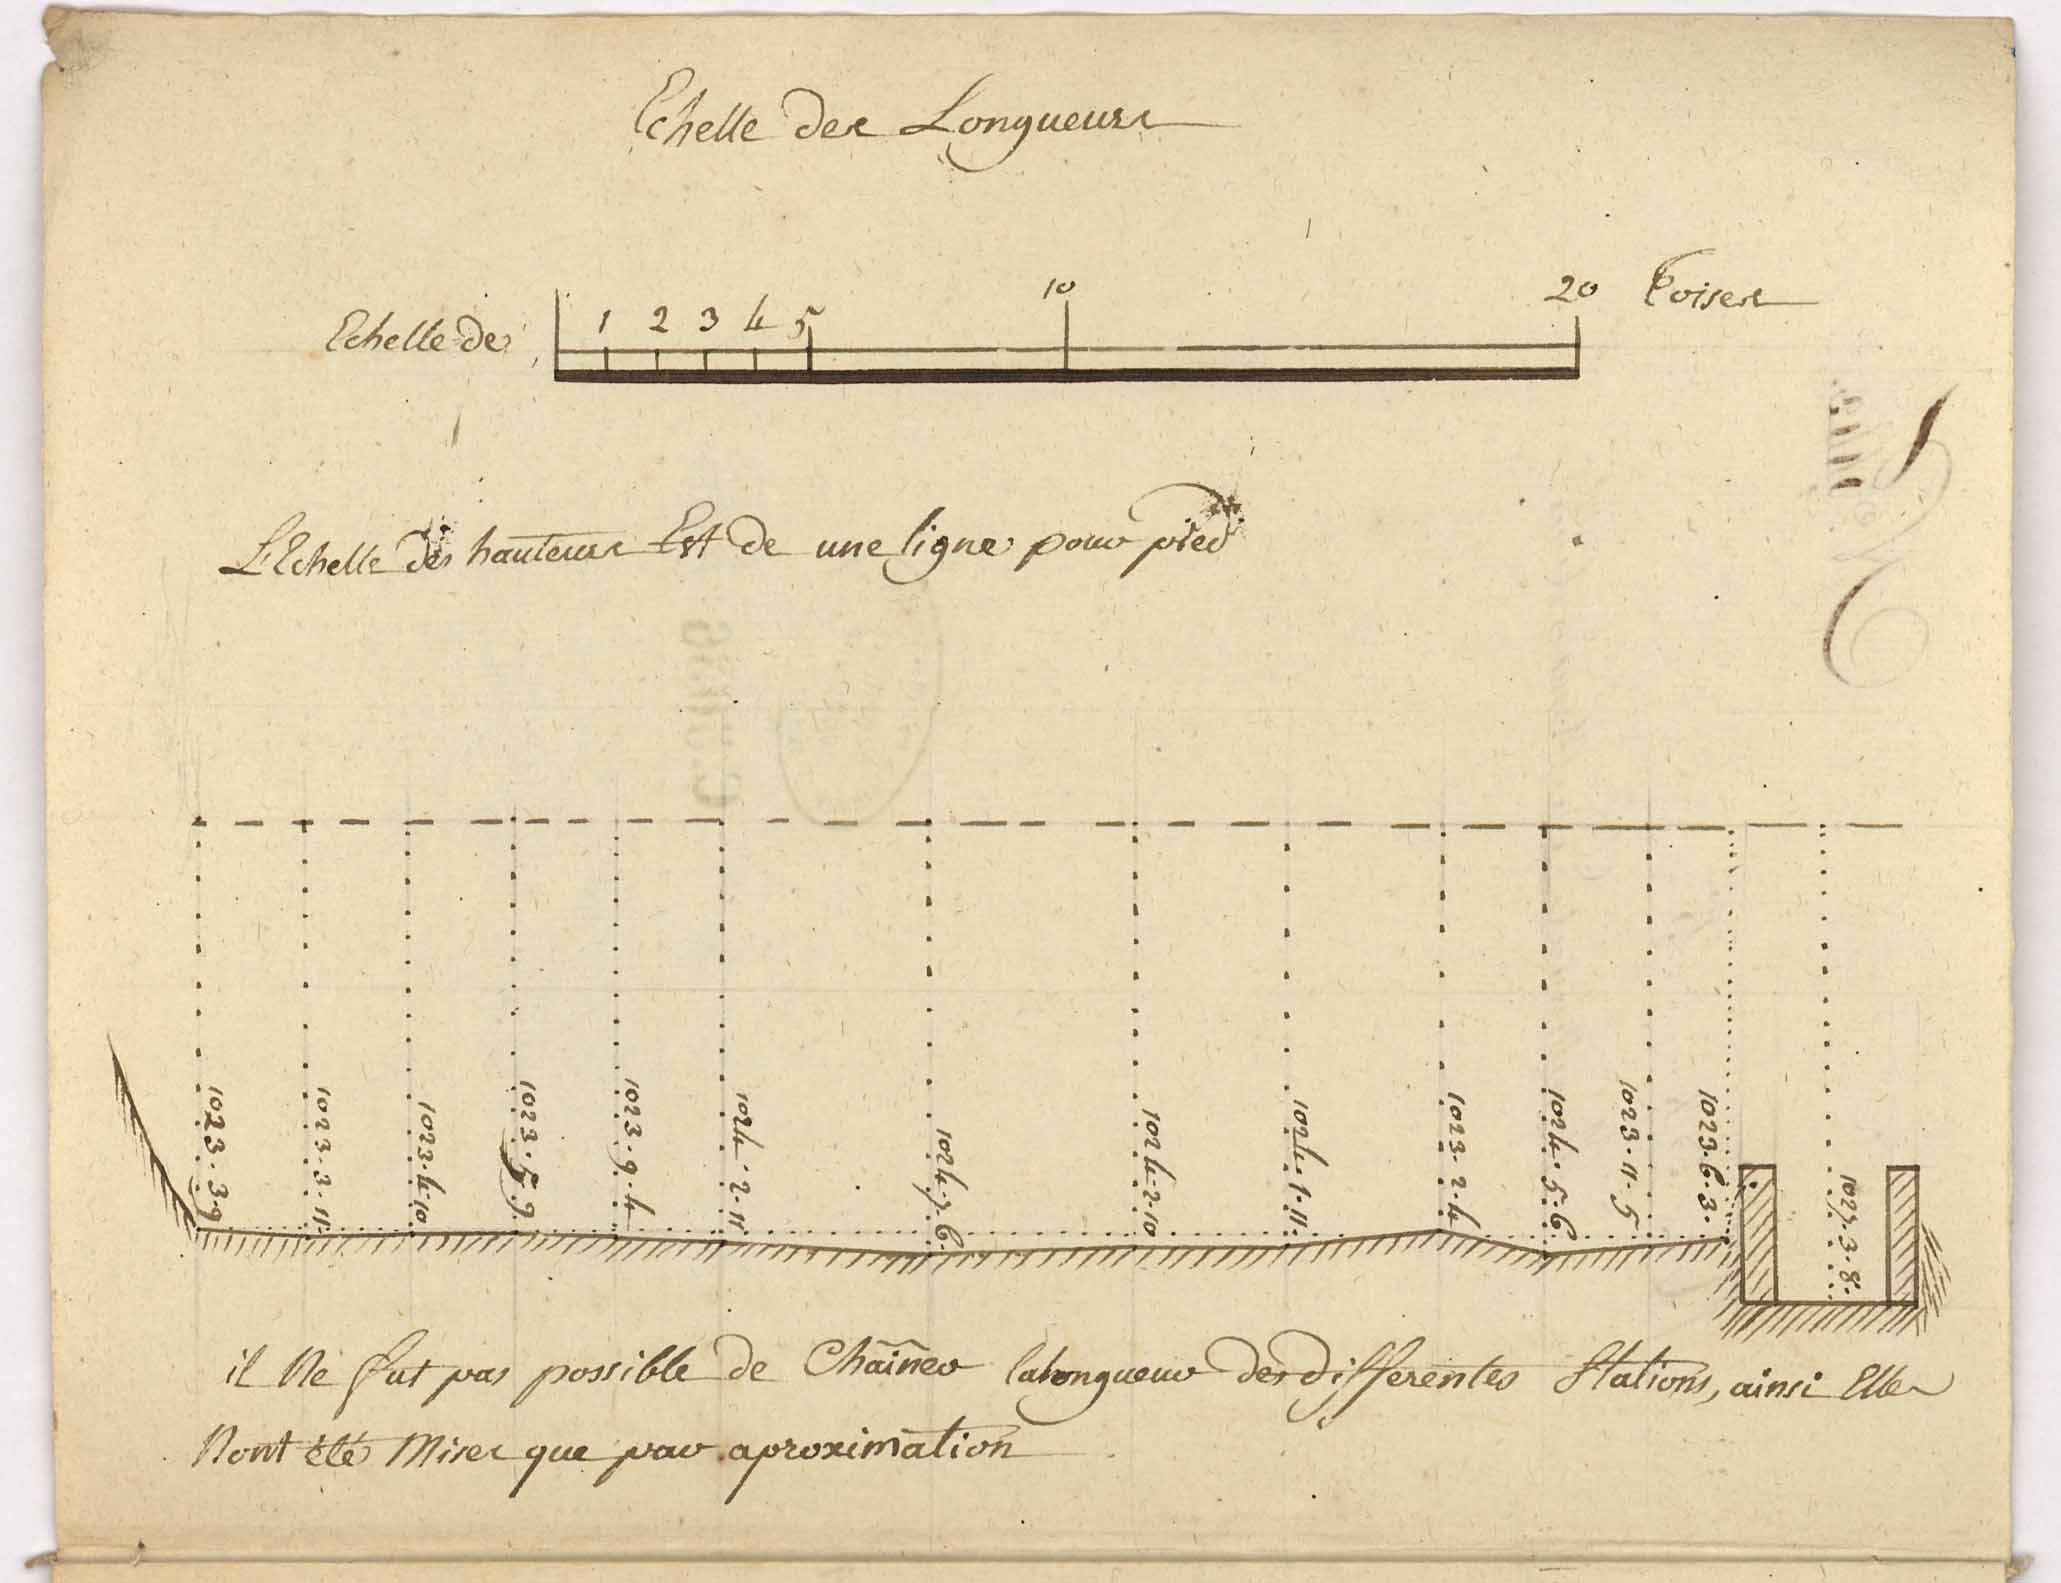 Echelle des Longueurs
Echelle de 1 2 3 4 5 10 20 Toises
L'Echelle des hauteurs Est de une ligne pour pied
1023.3.9
1023.3.11
1023.4.10
1023.5.9
1023.9.4
1024.2.11
1024.7.6
1024.2.10
1024.1.11
1023.2.4
1024.5.6
1023.11.5
1023.6.3
1027.3.8
il Ne fut pas possible de Chaîner la longueur des differentes Stations, ainsi Elles
Nont été Mises que par aproximation